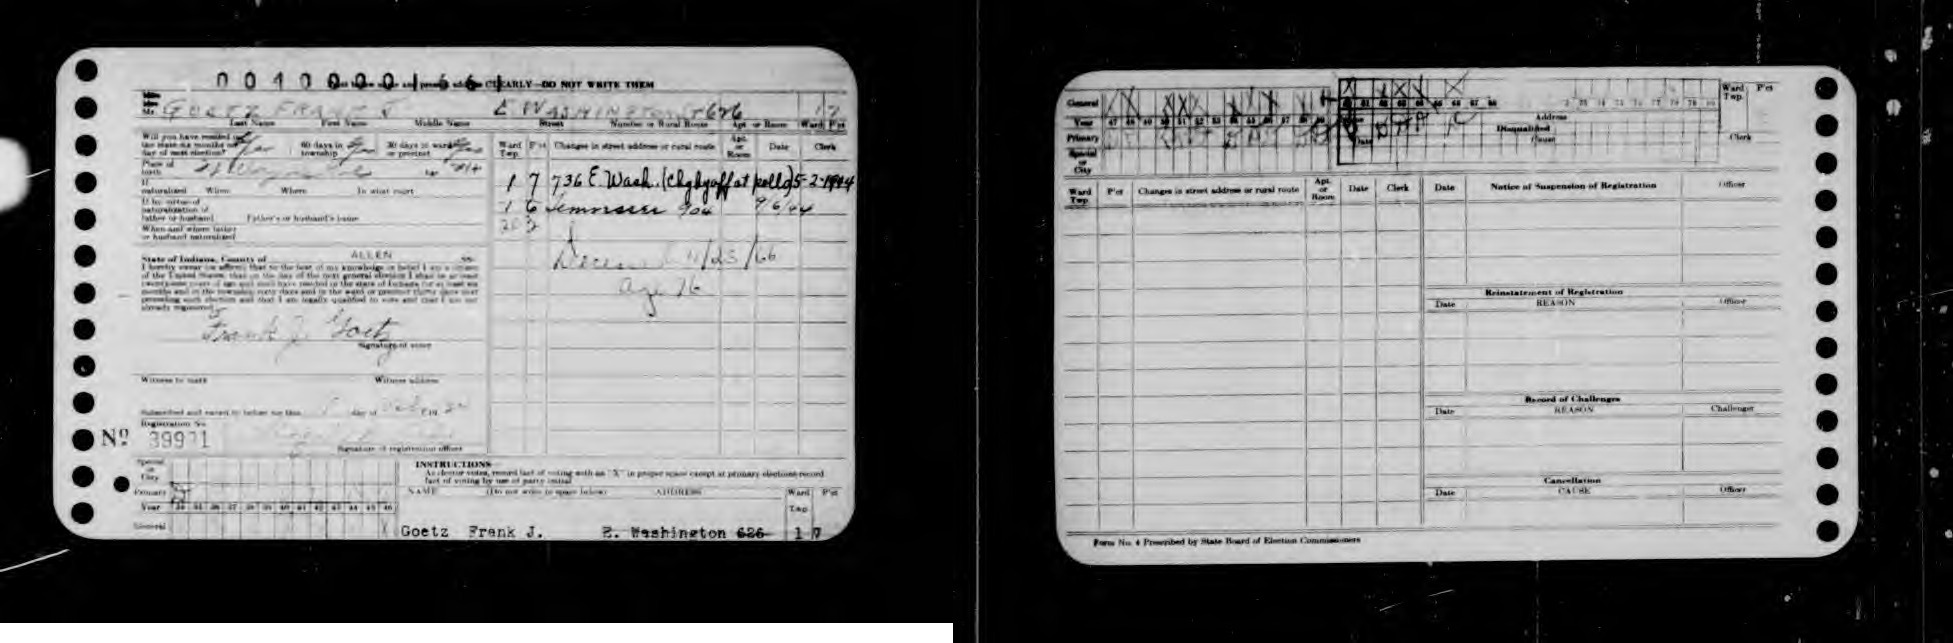 0040000166
CLEARLY—DO NOT WRITE THEM
Mr. GOETZ FRANK J E WASHINGTON ST 626 1 7
Last Name First Name Middle Name Street Number or Rural Route Apt. or Room Ward P'ct
Will you have resided in the state six months on day of next election? Yes 60 days in township Yes 30 days in ward or precinct Yes
Ward Twp. P'ct Changes in street address or rural route Apt. or Room Date Clerk
Place of birth Ft Wayne
If naturalized When Where In what court
If by virtue of naturalization of father or husband Father's or husband's name
When and where father or husband naturalized
1 7 736 E. Wash. (Chg by aff at polls) 5-2-1944
1 6 Tennessee 904 9/6/44
Deceased 11/23/66
age 76
State of Indiana, County of ALLEN ss.
I hereby swear (or affirm) that to the best of my knowledge or belief I am a citizen
of the United States, that on the day of the next general election I shall be at least
twenty-one years of age and shall have resided in the state of Indiana for at least six
months and in the township sixty days and in the ward or precinct thirty days next
preceding such election and that I am legally qualified to vote and that I am not
already registered.
Frank J. Goetz
Signature of voter
Witness to mark Witness address
Subscribed and sworn to before me this day of
Registration No.
No. 39931
Signature of registration officer
Special or City
Primary
Year 34 35 36 37 38 39 40 41 42 43 44 45 46
General
INSTRUCTIONS
As elector votes, record fact of voting with an "X" in proper space except at primary elections record
fact of voting by use of party initial
NAME (Do not write in space below) ADDRESS Ward Twp. P'ct
Goetz Frank J. E. Washington 626 1 7
General
Year 47 48 49 50 51 52 53 54 55 56 57 58 59 60 61 62 63 64 65 66 67 68
Primary
Special or City
Address
Disqualified
Date Cause Clerk
Ward Twp. P'ct
Ward Twp. P'ct Changes in street address or rural route Apt. or Room Date Clerk
Date Notice of Suspension of Registration Officer
Reinstatement of Registration
Date REASON Officer
Record of Challenges
Date REASON Challenger
Cancellation
Date CAUSE Officer
Form No. 4 Prescribed by State Board of Election Commissioners